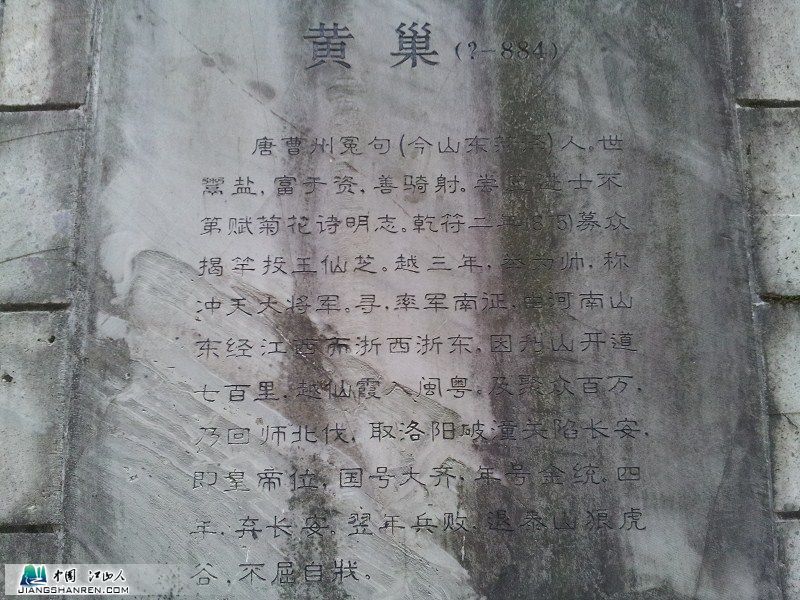 黄巢(?-884)
唐曹州冤句(今山东菏泽)人。世
鬻盐,富于资,善骑射。尝 进士不
第赋菊花诗明志。乾符二年(875)募众
揭竿投王仙芝。越三年,举为帅,称
冲天大将军。寻,率军南征,由河南山
东经江西而浙西浙东。因刊山开道
七百里,越仙霞入闽粤。及聚众百万,
乃回师北伐,取洛阳破潼关陷长安,
即皇帝位,国号大齐,年号金统。四
年,弃长安。翌年兵败,退泰山狼虎
谷,不屈自戕。
中国 江山人
JIANGSHANREN.COM